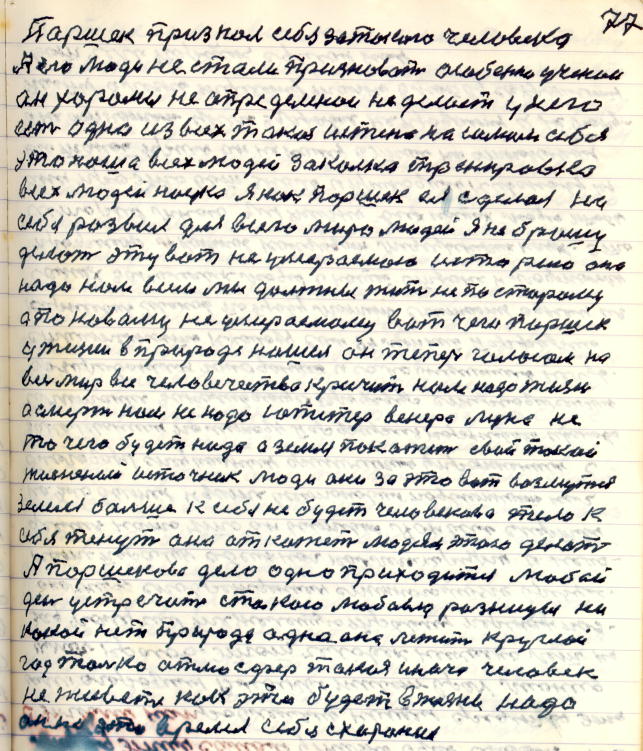 77
Паршек признал себя за такого человека
А его люди не стали признавать особенно ученои
он хорошы не определенои не делает у него
есть одно из всех такая истена на самим себя
это наша всех людей закалка тренровка
всех людей наука Я как Паршек ея сделал на
себя развил для всего мира людей Я не брошу
делать эту вот не умераемою историю она
надо нам всем мы должны жить не по старому
а по новаму не умераемому вот чего Паршек
у жизни в природе нашел он тепер голосом на
весь мир все человечества кричит нам надо жизн
а смерть нам не надо Юпитер венера луна не
то чего будет надо а земля покажет свой такой
жизненай источник люди они за это вот возмутся
земля больше к себя не будет человекова тело к
себя тенут она откажет людям этого делать
А Паршекова дело одно приходится любой
ден устречать с такою любовю разницы ни
какой нет Природа одна она лежит круглой
год толко атмосфер такая иначе человек
не живет как это будет в жизни надо
он на это время себя сохранил